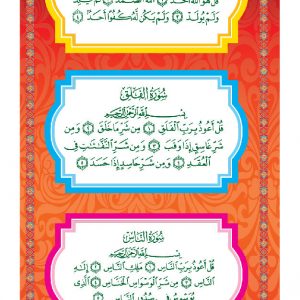 قُلْ هُوَ اللَّهُ أَحَدٌ ۝ اللَّهُ الصَّمَدُ ۝ لَمْ يَلِدْ
وَلَمْ يُولَدْ ۝ وَلَمْ يَكُن لَّهُ كُفُوًا أَحَدٌ ۝
سُورَةُ الْفَلَقِ
بِسْمِ اللَّهِ الرَّحْمَٰنِ الرَّحِيمِ
قُلْ أَعُوذُ بِرَبِّ الْفَلَقِ ۝ مِن شَرِّ مَا خَلَقَ ۝ وَمِن
شَرِّ غَاسِقٍ إِذَا وَقَبَ ۝ وَمِن شَرِّ النَّفَّاثَاتِ فِي
الْعُقَدِ ۝ وَمِن شَرِّ حَاسِدٍ إِذَا حَسَدَ ۝
سُورَةُ النَّاسِ
بِسْمِ اللَّهِ الرَّحْمَٰنِ الرَّحِيمِ
قُلْ أَعُوذُ بِرَبِّ النَّاسِ ۝ مَلِكِ النَّاسِ ۝ إِلَٰهِ
النَّاسِ ۝ مِن شَرِّ الْوَسْوَاسِ الْخَنَّاسِ ۝ الَّذِي
يُوَسْوِسُ فِي صُدُورِ النَّاسِ